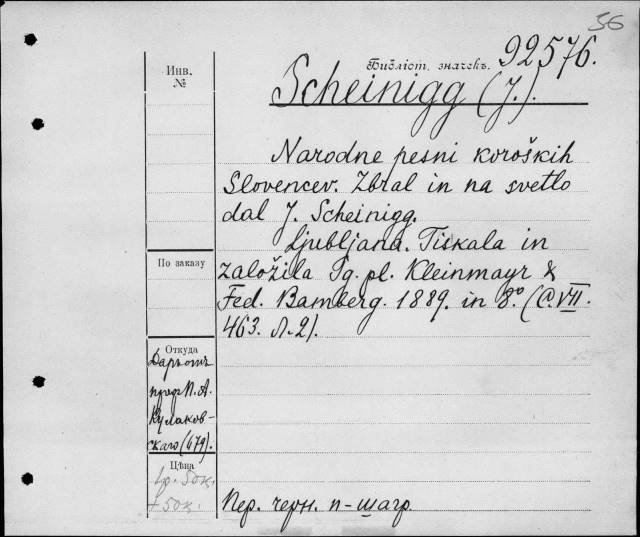 56
Библіот. значекъ. 92576.
Инв.
№
Scheinigg (J.).
Narodne pesni koroških
Slovencev. Zbral in na svetlo
dal J. Scheinigg.
Ljubljana. Tiskala in
По заказу
založila Ig. pl. Kleinmayr &
Fed. Bamberg. 1889. in 8.° (C. VII.
463. Л. 2).
Откуда
Даръ отъ
проф. П. А.
Кулаков-
скаго (679).
Цѣна
1р. 50к.
+ 50к.
Пер. черн. п-шагр.